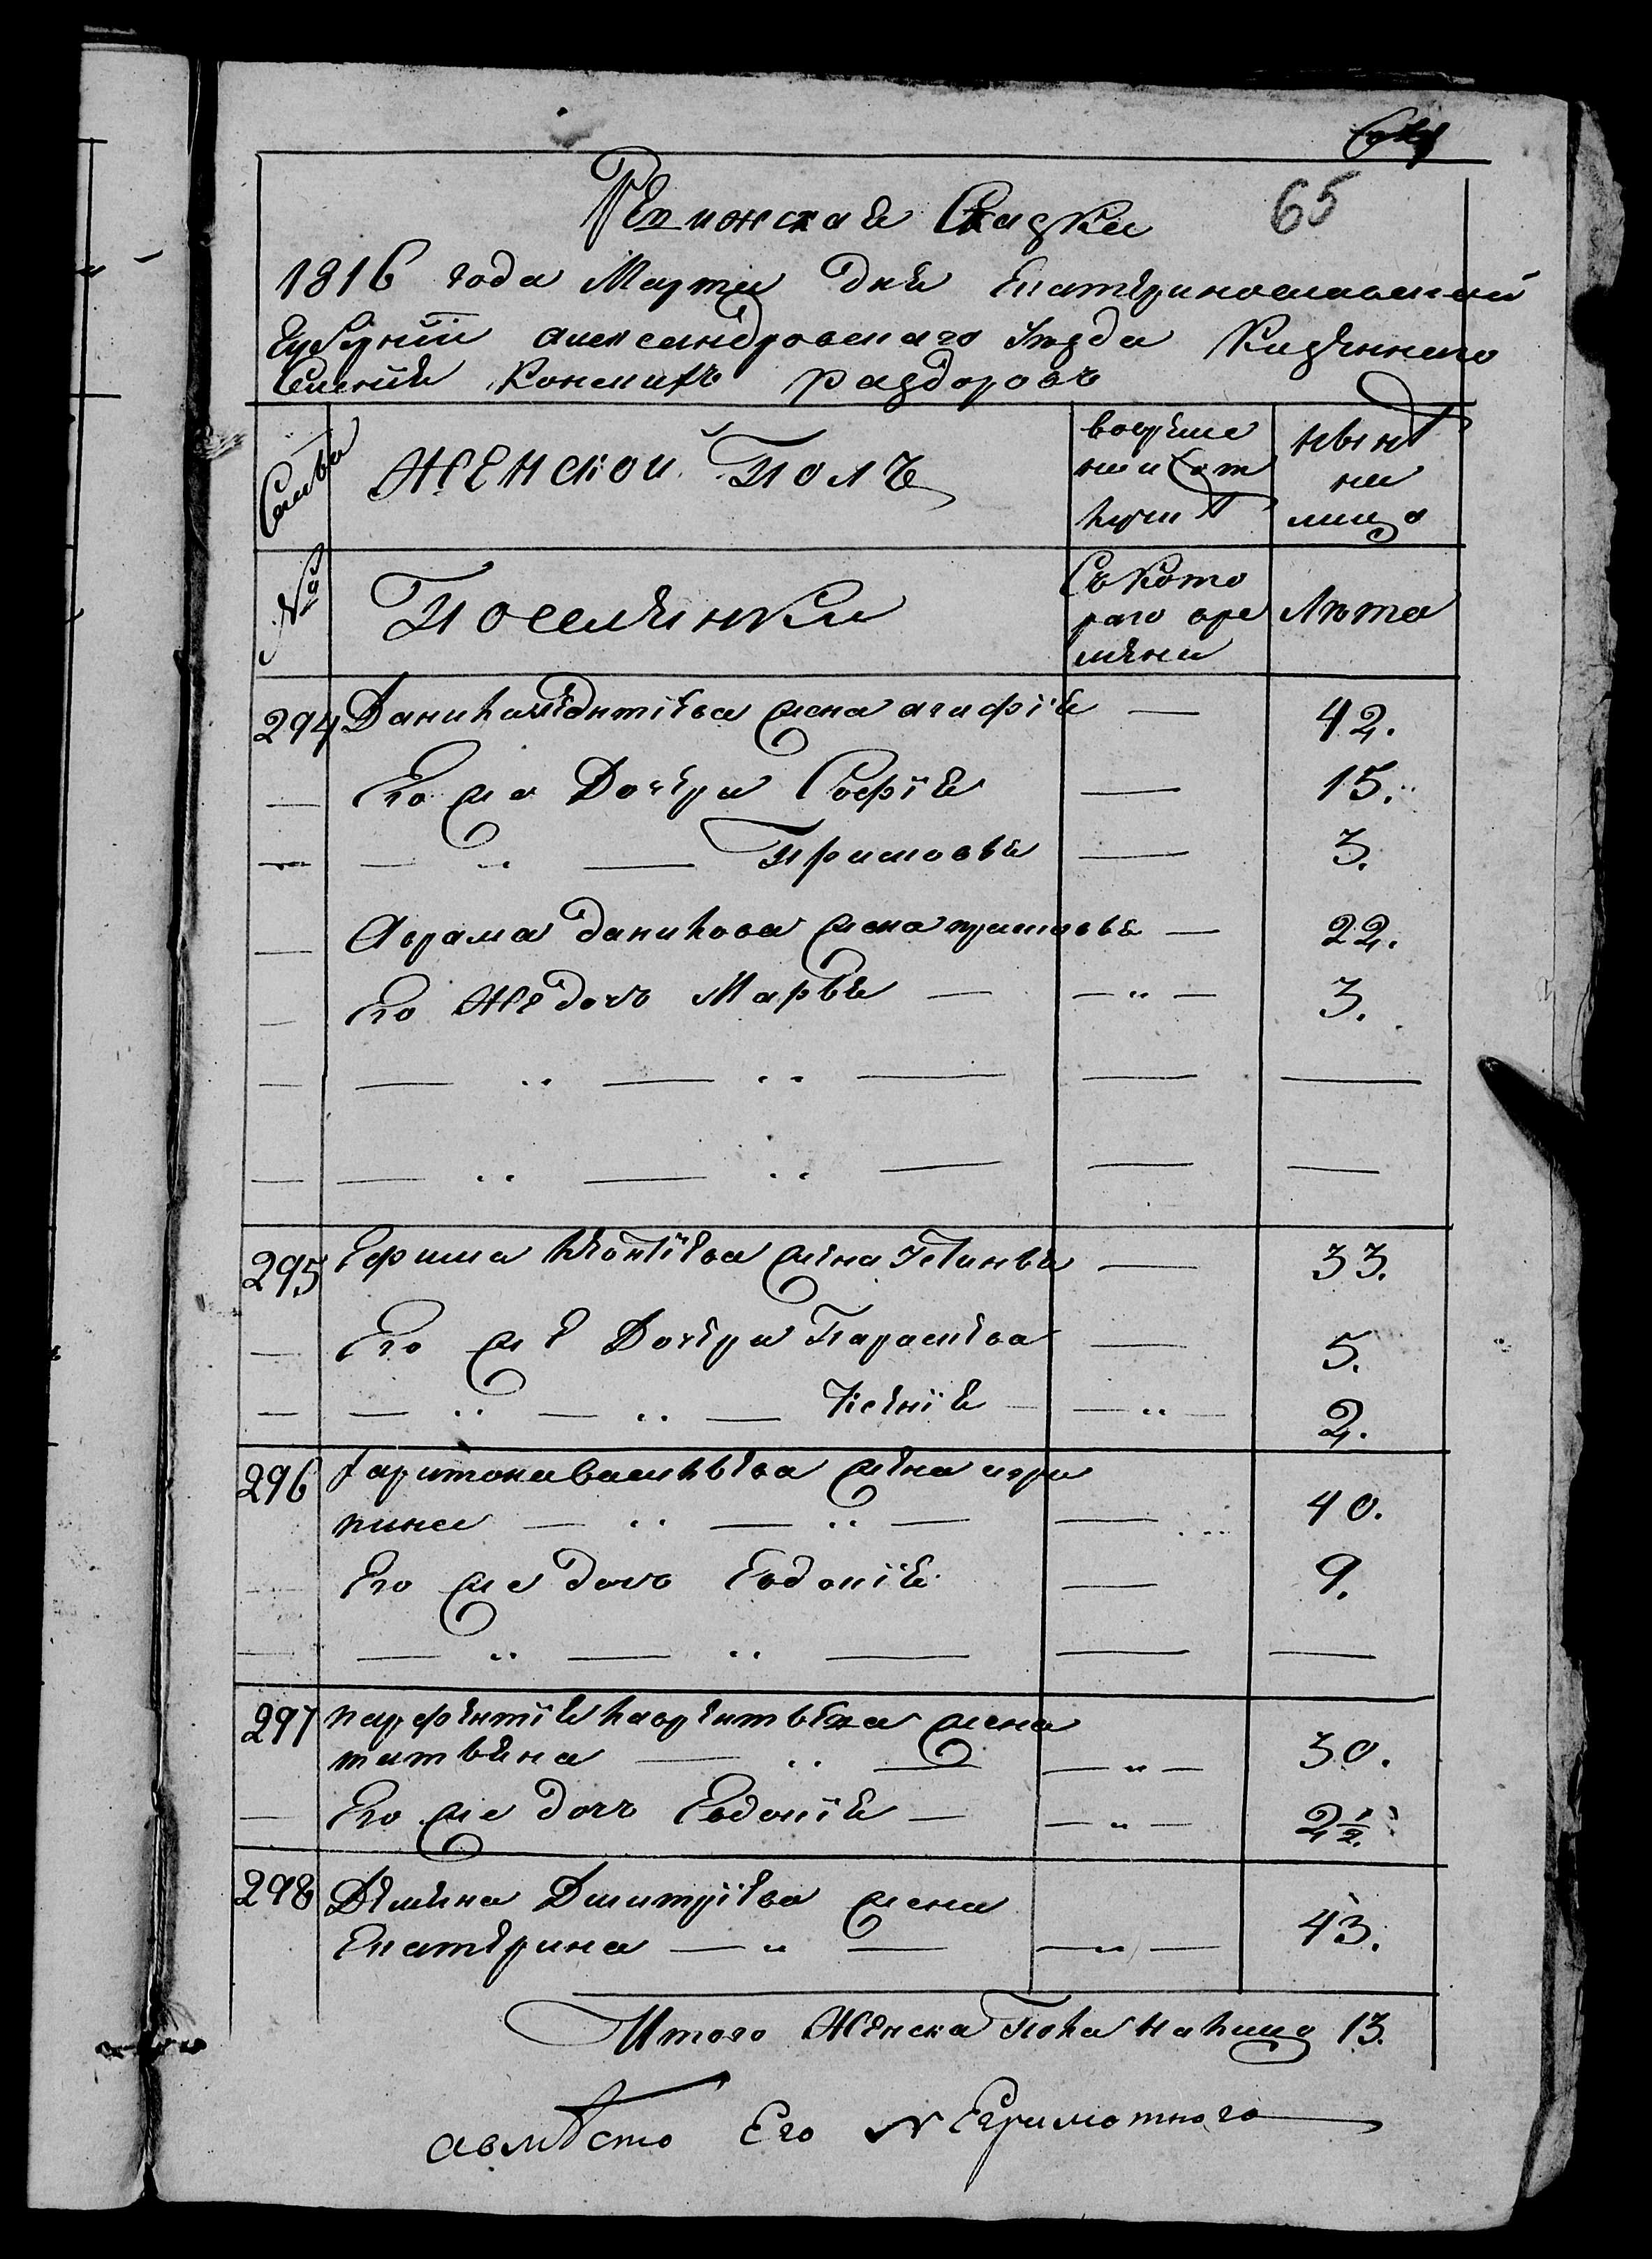 65
Ревижская Сказка
1816 года Марта дня Екатеринославской
Губернии александровскаго уезда Казеннаго
Селения Конскихъ раздоровъ
Семьи
Женской Полъ
вовреме
ннои от
лучкѣ
нынѣ
на
лицо
№
Поселянки
Съ кото
раго вре
мени
Лѣта
294 Данила Леонтіева жена агафія — 42.
— Его же Дочери Софія — 15.
— — " — Прасковья — 3.
— Аврама данилова жена прасковья — 22.
— Его же дочь Марья — — " — 3.
— — " — " — — —
— — " — " — — —
295 Ефима Леонтіева жена Устинья — 33.
— Его же Дочери Параскева — 5.
— — " — " — Ксенія — — " — 2.
296 Харитона васильева жена агри
пина — " — " — — 40.
Его же дочь Евдокія — 9.
— — " — " — — —
297 парфентія лаврентьева жена
татьяна — " — — " — 30.
— Его же дочь Евдокія — — " — 2 1/2.
298 Демяна Дмитріева жена
Екатерина — " — — " — 43.
Итого Женска Пола на лицо 13.
авмѣсто Его неграмотного